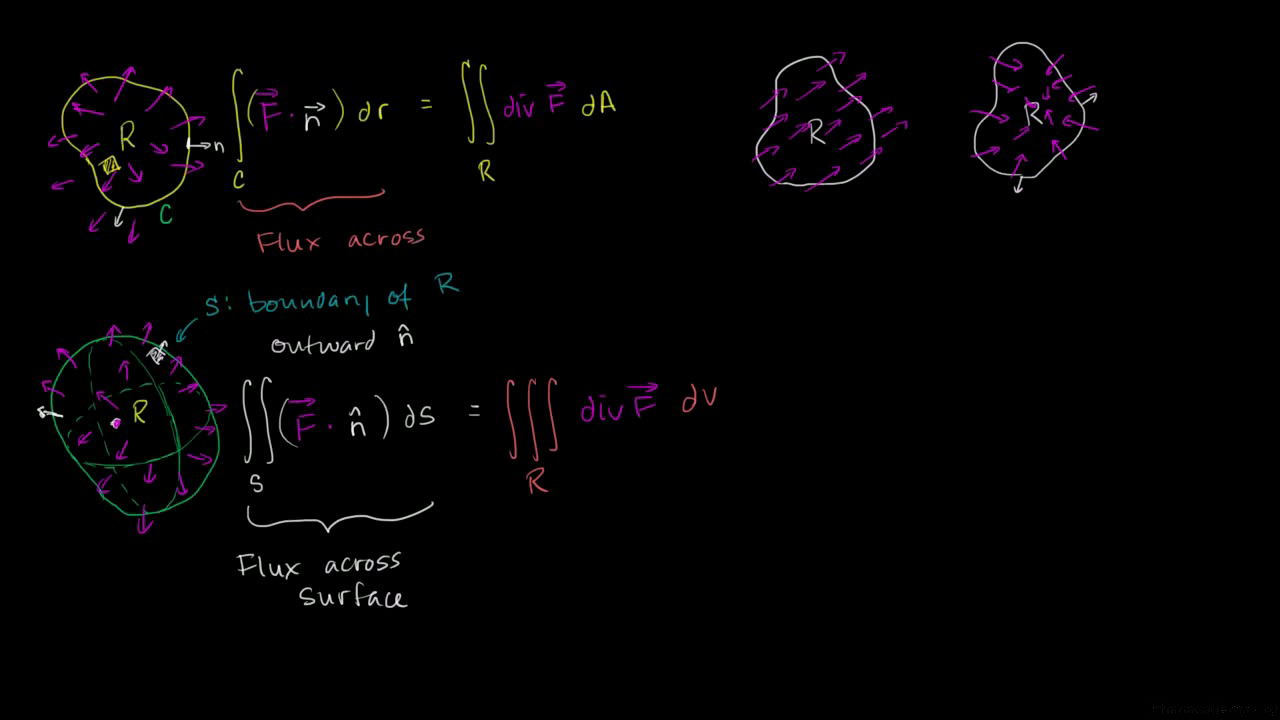 R
n
C
∫ ( F⃗ · n⃗ ) dr = ∬ div F⃗ dA
C
R
Flux across
R
R
S: boundary of R
outward n̂
R
∬ ( F⃗ · n̂ ) dS = ∭ div F⃗ dV
S
R
Flux across
surface